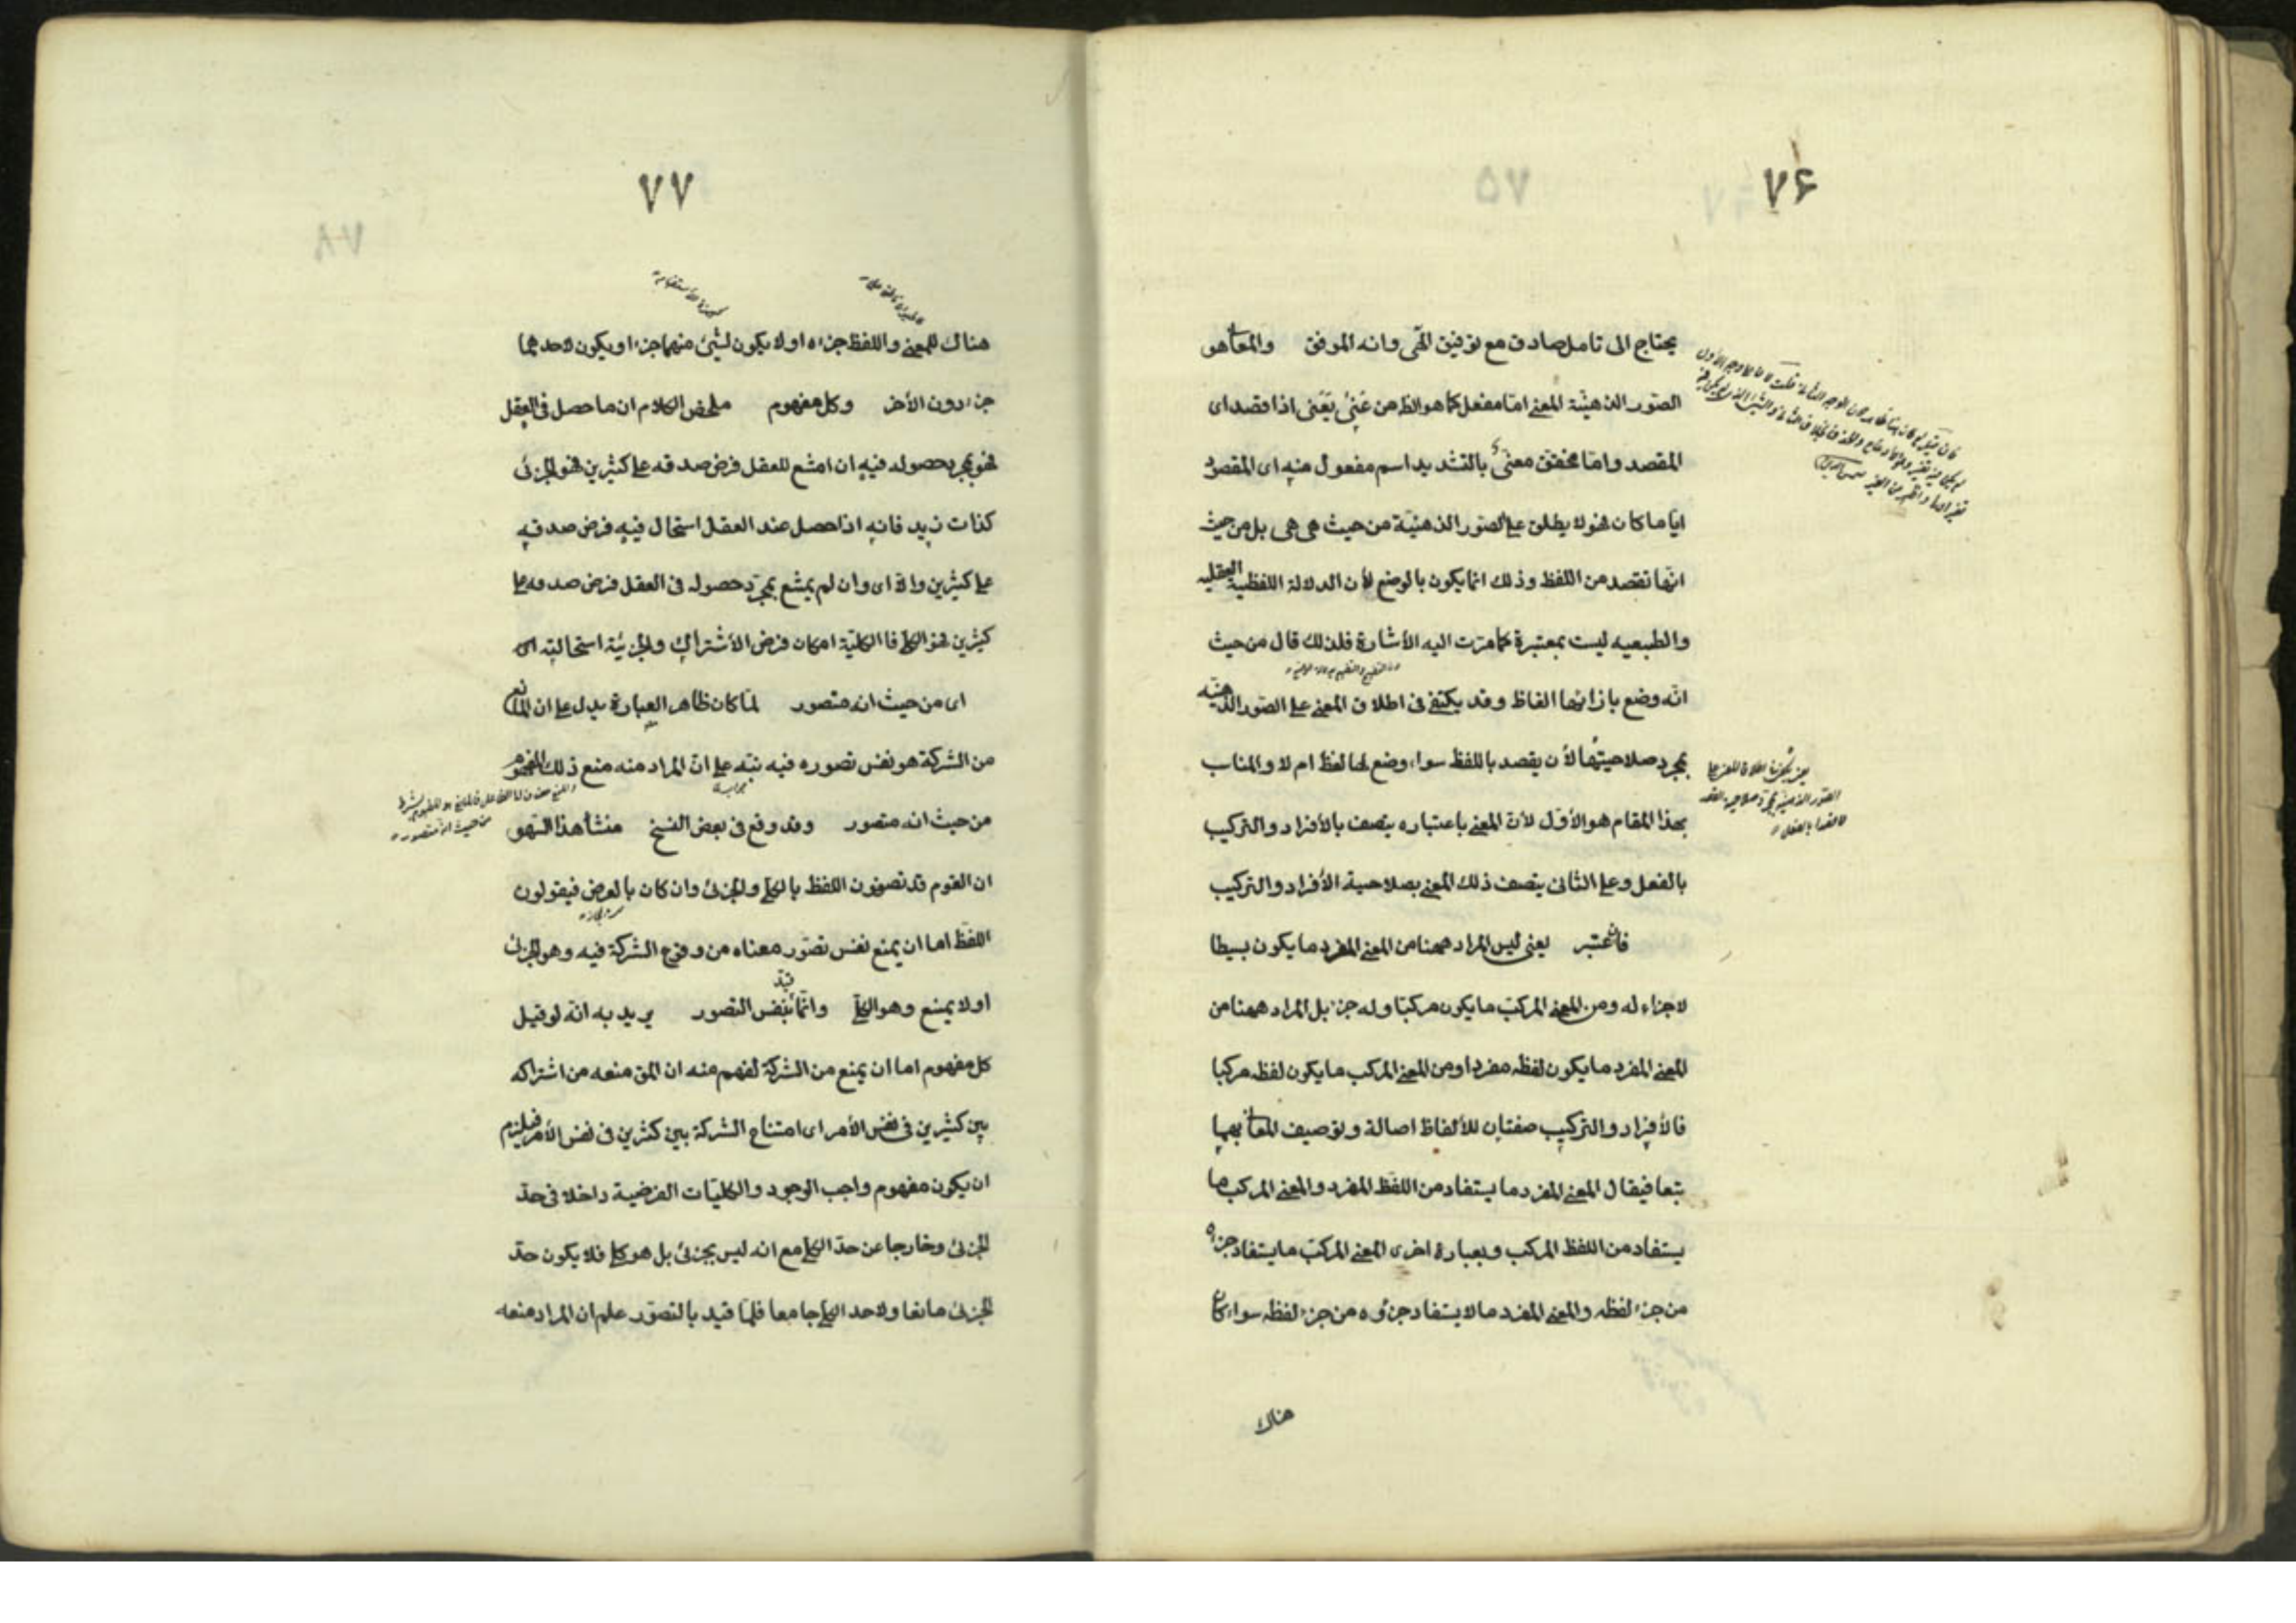 ٧۶
يحتاج الى تامل صادق مع توفيق الٓهى وانه الموفق والمعانى هو
الصّور الذهنيّة المعنى امّا مفعل كما هو الظ من عَنىٰ يَعْنى اذا قصد اى
المقصد وامّا مخفف معنىّ بالتشديد اسم مفعول منه اى المقصود
ايّاما كان فهو لا يطلق على الصّور الذهنيّة من حيث هى هى بل من حيث
انّها تقصد من اللفظ وذلك انما يكون بالوضع لأن الدلالة اللفظية العقليه
والطبعيه ليست بمعتبرة كما مرّت اليه الأشارة فلذلك قال من حيث
انّه وضع بازائها الفاظ وقد يكتفى فى اطلاق المعنى على الصّور الذهنيّه
بمجرد صلاحيتها لأن يقصد باللفظ سواء وضع لها لفظ ام لا والمناسب
بهذا المقام هو الأوّل لأنّ المعنى باعتباره يتصف بالأفراد والتركيب
بالفعل وعلى الثانى يتصف ذلك المعنى بصلاحية الأفراد والتركيب
فان عتبر يعنى ليس المراد ههنا من المعنى المفرد ما يكون بسيطا
لا جزاء له ومن المعنى المركّب ما يكون مركبّا وله جزء بل المراد ههنا من
المعنى المفرد ما يكون لفظه مفردا ومن المعنى المركب ما يكون لفظه مركبا
فالأفراد والتركيب صفتان للألفاظ اصالة وتوصيف المعانى بهما
تبعا فيقال المعنى المفرد ما يستفاد من اللفظ المفرد والمعنى المركب ما
يستفاد من اللفظ المركب وبعبارة اخرى المعنى المركّب ما يستفاد جزءه
من جزء لفظه والمعنى المفرد ما لا يستفاد جزؤه من جزء لفظه سواء كان
هناك
يعنى
الصّور الذهنيّة بمجرّد صلاحيه
٧٧
هناك للمعنى واللفظ جزءه او لا يكون لشئ منهما جزء او يكون لاحدهما
جزء دون الأخر وكل مفهوم ملخص الكلام ان ما حصل فى العقل
فهو بمجرد حصوله فيه ان امتنع للعقل فرض صدقه على كثيرين فهو الجزئى
كذات زيد فانه اذا حصل عند العقل استحال فيه فرض صدقه
على كثيرين والّا اى وان لم يمتنع بمجرّد حصوله فى العقل فرض صدقه على
كثيرين فهو الكلى فا الكليّة امكان فرض الأشتراك والجزئيّة استحالته اى
اى من حيث انه متصور لمّا كان ظاهر العبارة يدل على ان المانع
من الشركة هو نفس تصوره فيه نبّه على انّ المراد منه منع ذلك المفهوم
من حيث انه متصور وقد وقع فى بعض النسخ منشأ هذا السّهو
ان القوم قد تصفون اللفظ بالكلى والجزئى وان كان بالعرض فيقولون
اللفظ اما ان يمنع نفس تصّور معناه من وقوع الشركة فيه وهو الجزئى
او لا يمنع وهو الكلىّ وانّما قيّد بنفس التصور يريد به انّه لو قيل
كل مفهوم اما ان يمنع من الشركة لفهم منه ان المق منعه من اشتراكه
بين كثيرين فى نفس الأمر اى امتناع الشركة بين كثرين فى نفس الأمر فيلزم
ان يكون مفهوم واجب الوجود والكليّات الفرضية داخلا فى حدّ
الجزئى وخارجا عن حدّ الكلى مع انه ليس بجزئى بل هو كلى فلا يكون حدّ
الجزئى مانعا ولا حد الكلى جامعا فلمّا قيد بالتصوّر علم ان المراد منعه
من حيث انه متصور